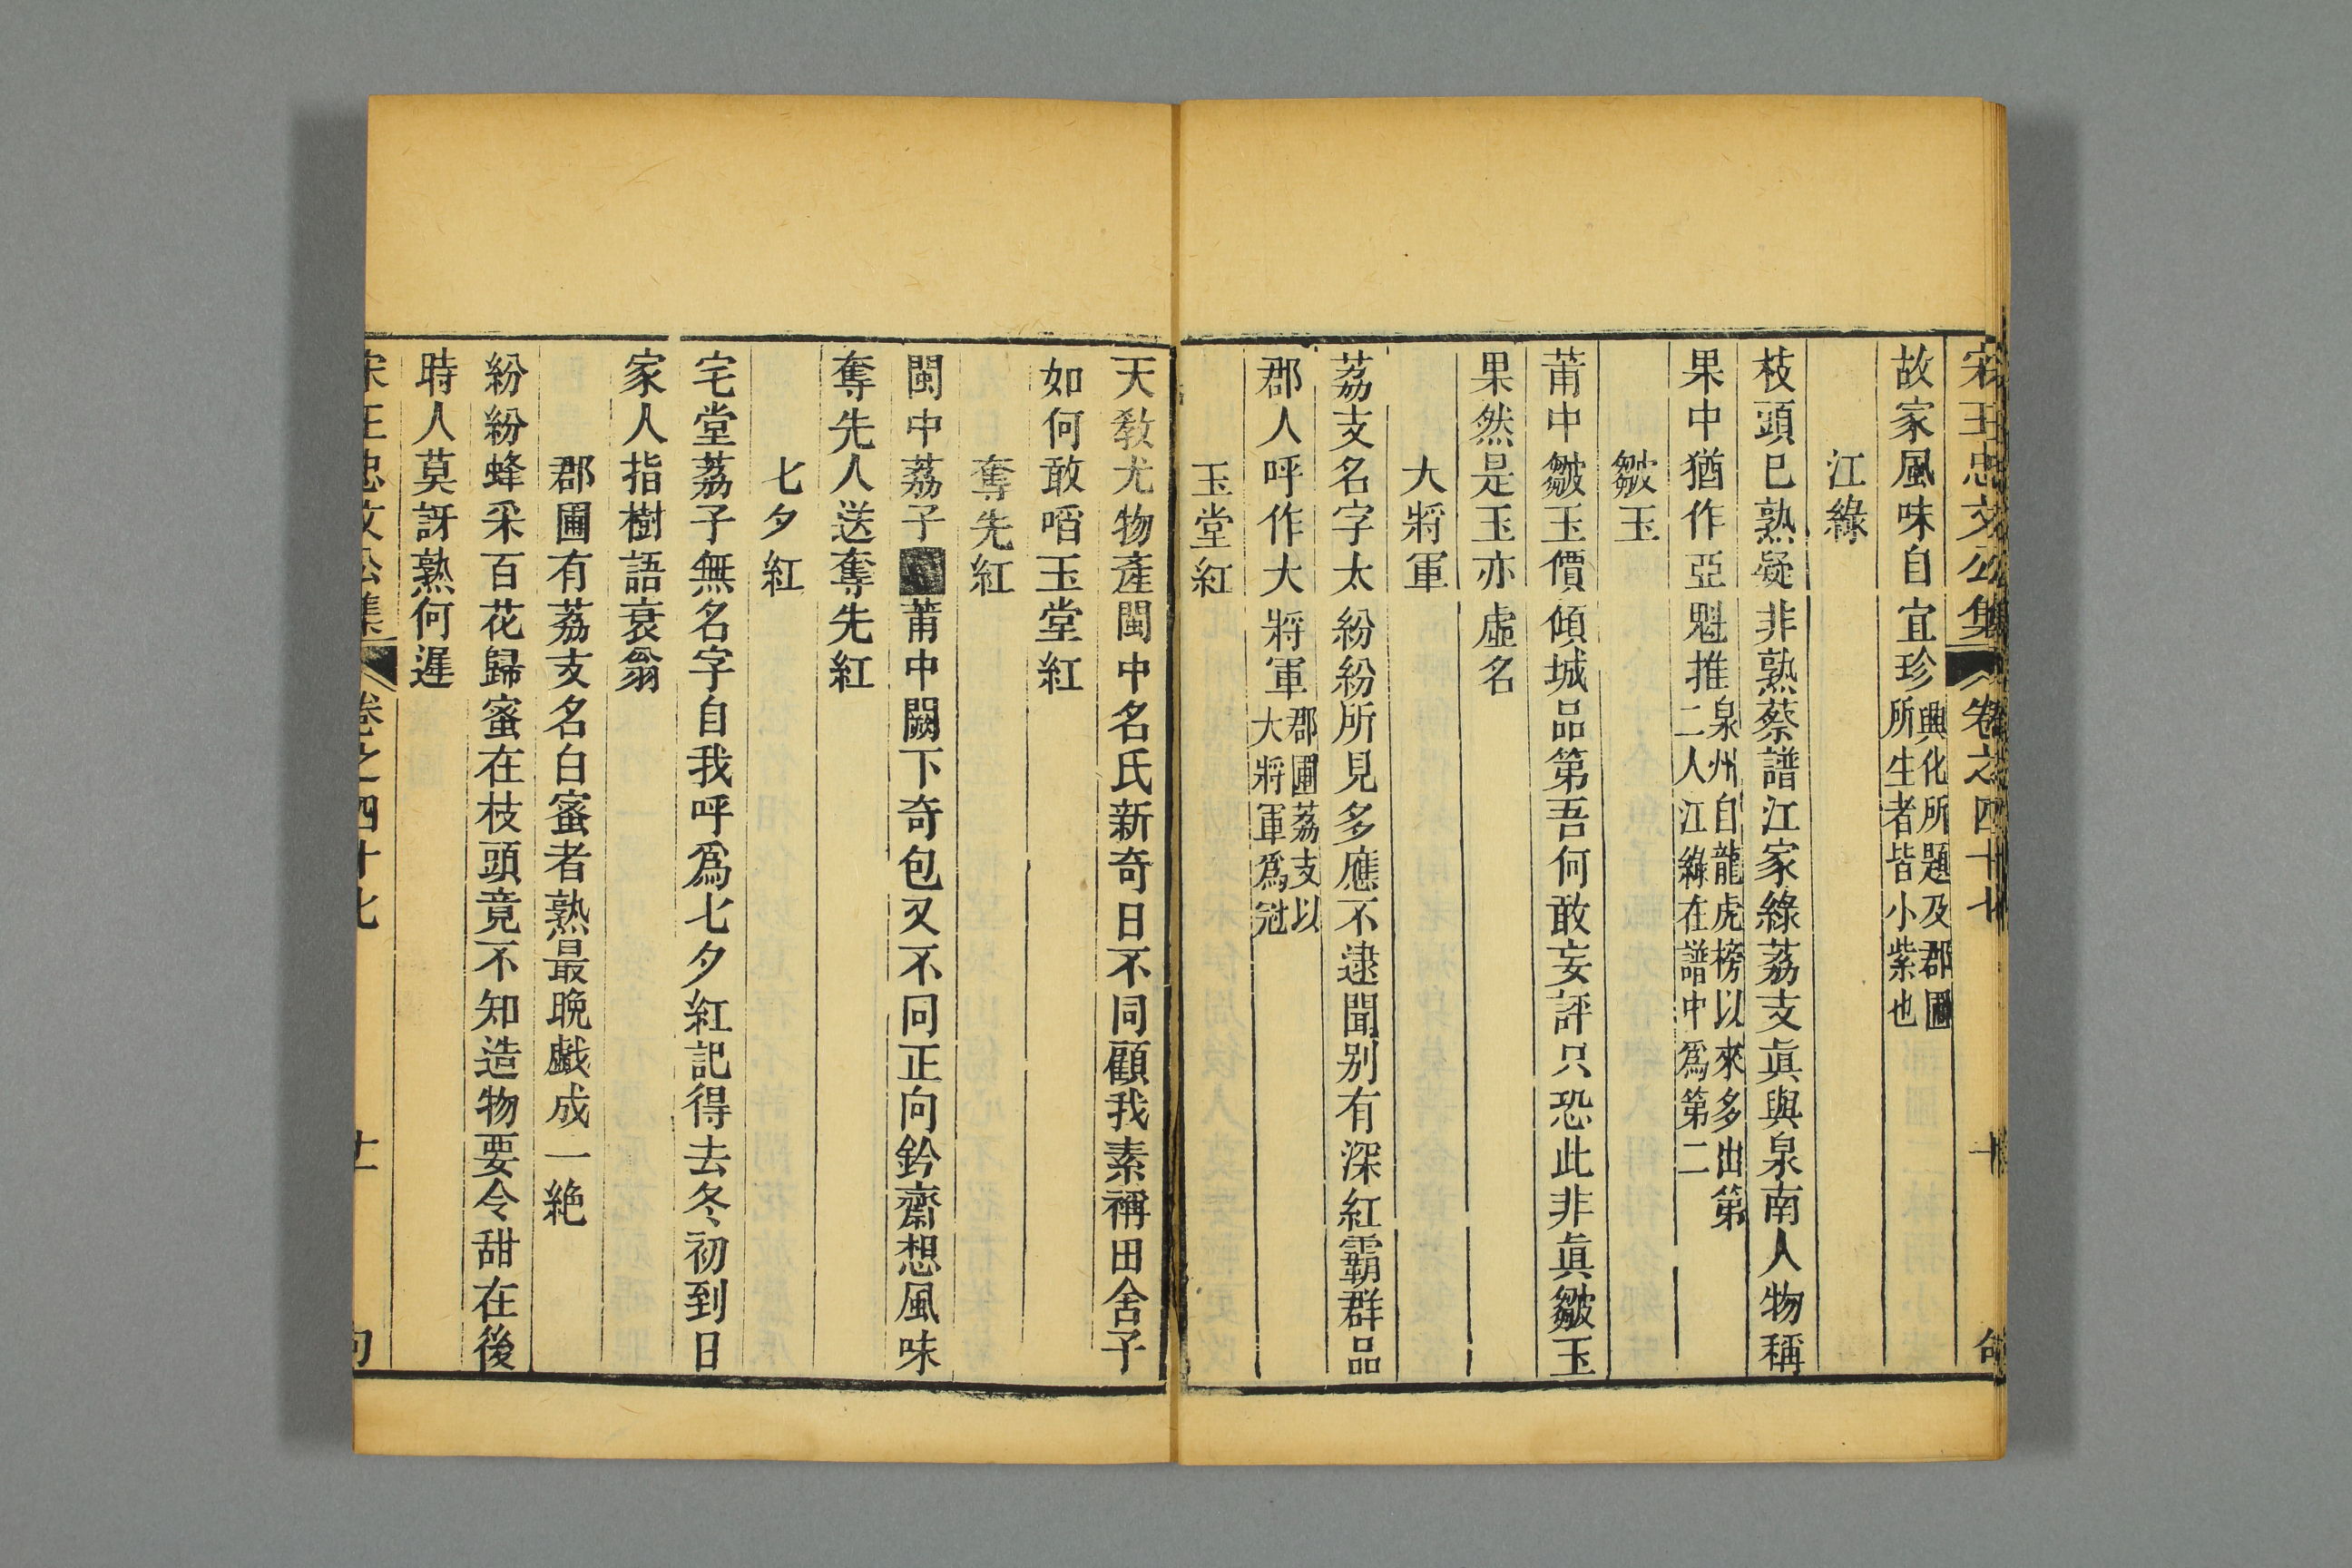 宋王忠文公集 卷之四十七 十
故家風味自宜珍興化所題及郡圃所生者皆小紫也
江綠
枝頭已熟疑非熟蔡譜江家綠荔支眞與泉南人物稱
果中猶作亞魁推泉州自龍虎榜以來多出第二人江綠在譜中爲第二
皺玉
莆中皺玉價傾城品第吾何敢妄評只恐此非眞皺玉
果然是玉亦虛名
大將軍
荔支名字太紛紛所見多應不逮聞别有深紅霸群品
郡人呼作大將軍郡圃荔支以大將軍爲冠
玉堂紅
天敎尤物產閩中名氏新奇日不同顧我素稱田舍子
如何敢㗖玉堂紅
奪先紅
閩中荔子莆中闕下奇包又不同正向鈐齋想風味
奪先人送奪先紅
七夕紅
宅堂荔子無名字自我呼爲七夕紅記得去冬初到日
家人指樹語衰翁
郡圃有荔支名白蜜者熟最晚戯成一絶
紛紛蜂采百花歸蜜在枝頭竟不知造物要令甜在後
時人莫訝熟何遲
宋王忠文公集 卷之四十七